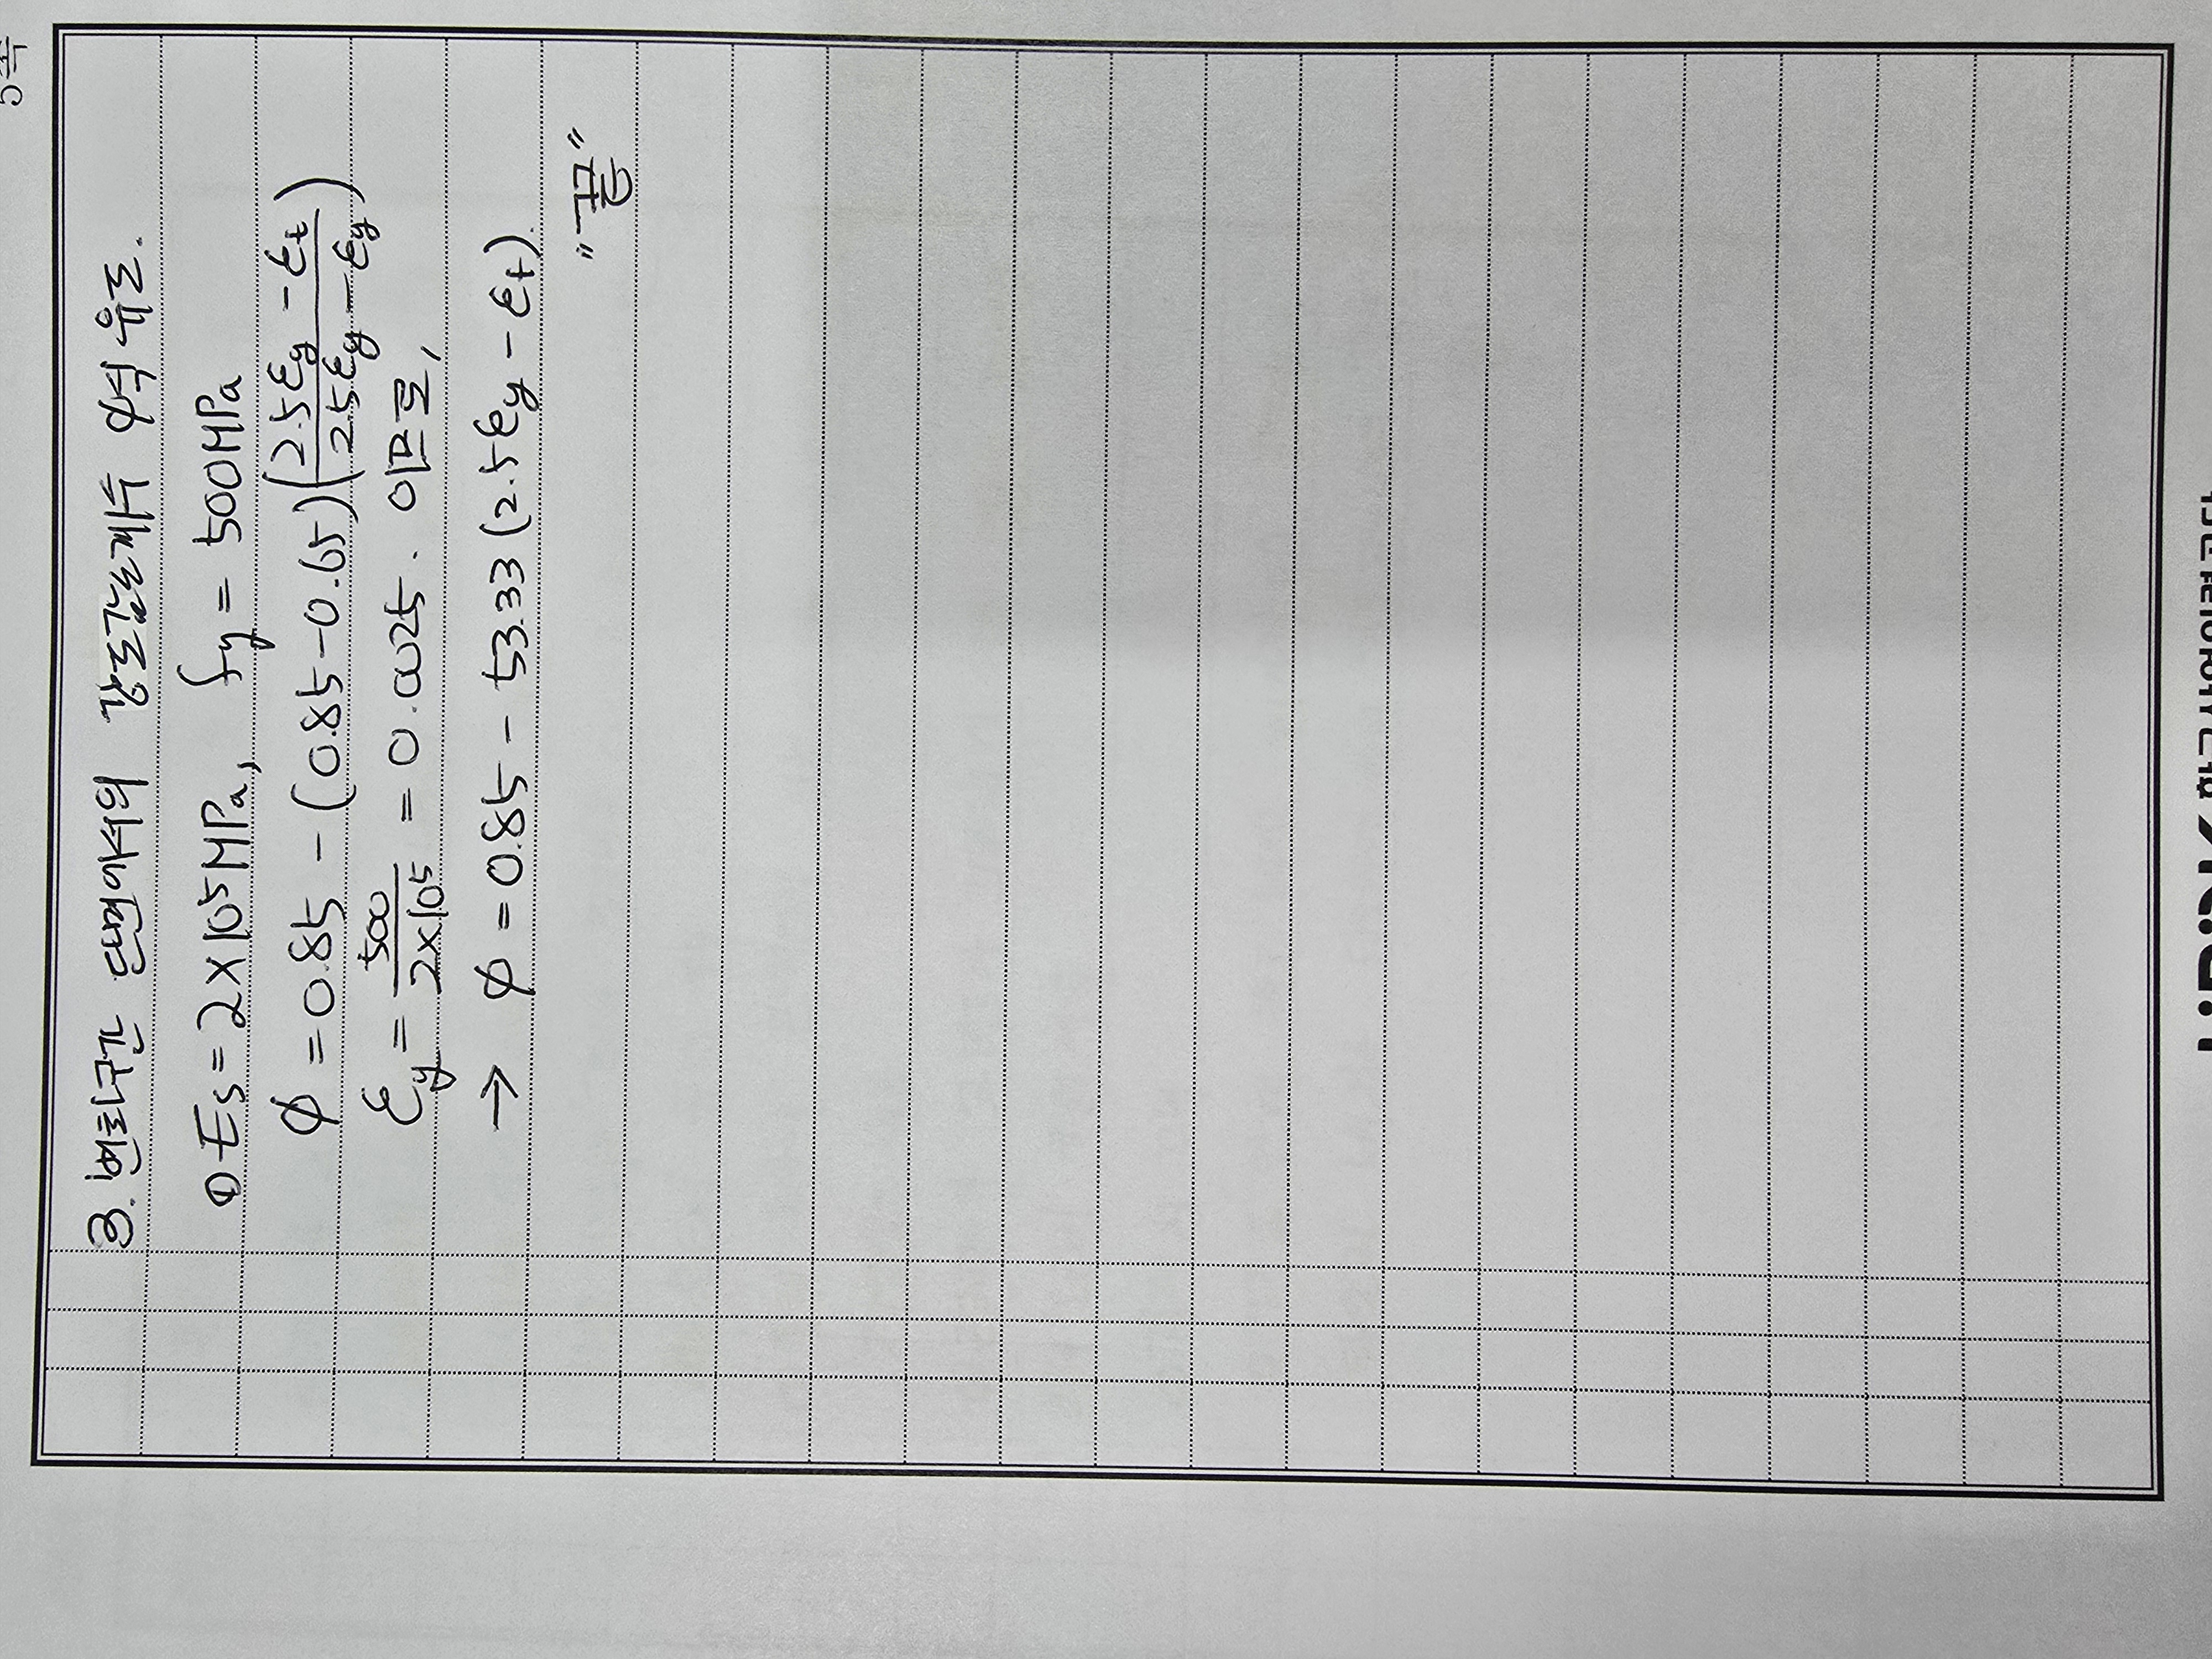 3. 변화구간 단면에서의 강도감소계수 φ식 유도.
① Es = 2×10⁵MPa, fy = 500MPa
φ = 0.85 - (0.85-0.65)(2.5εy - εt / 2.5εy - εy)
εy = 500 / 2×10⁵ = 0.0025. 이므로,
→ φ = 0.85 - 53.33 (2.5εy - εt).
"끝"